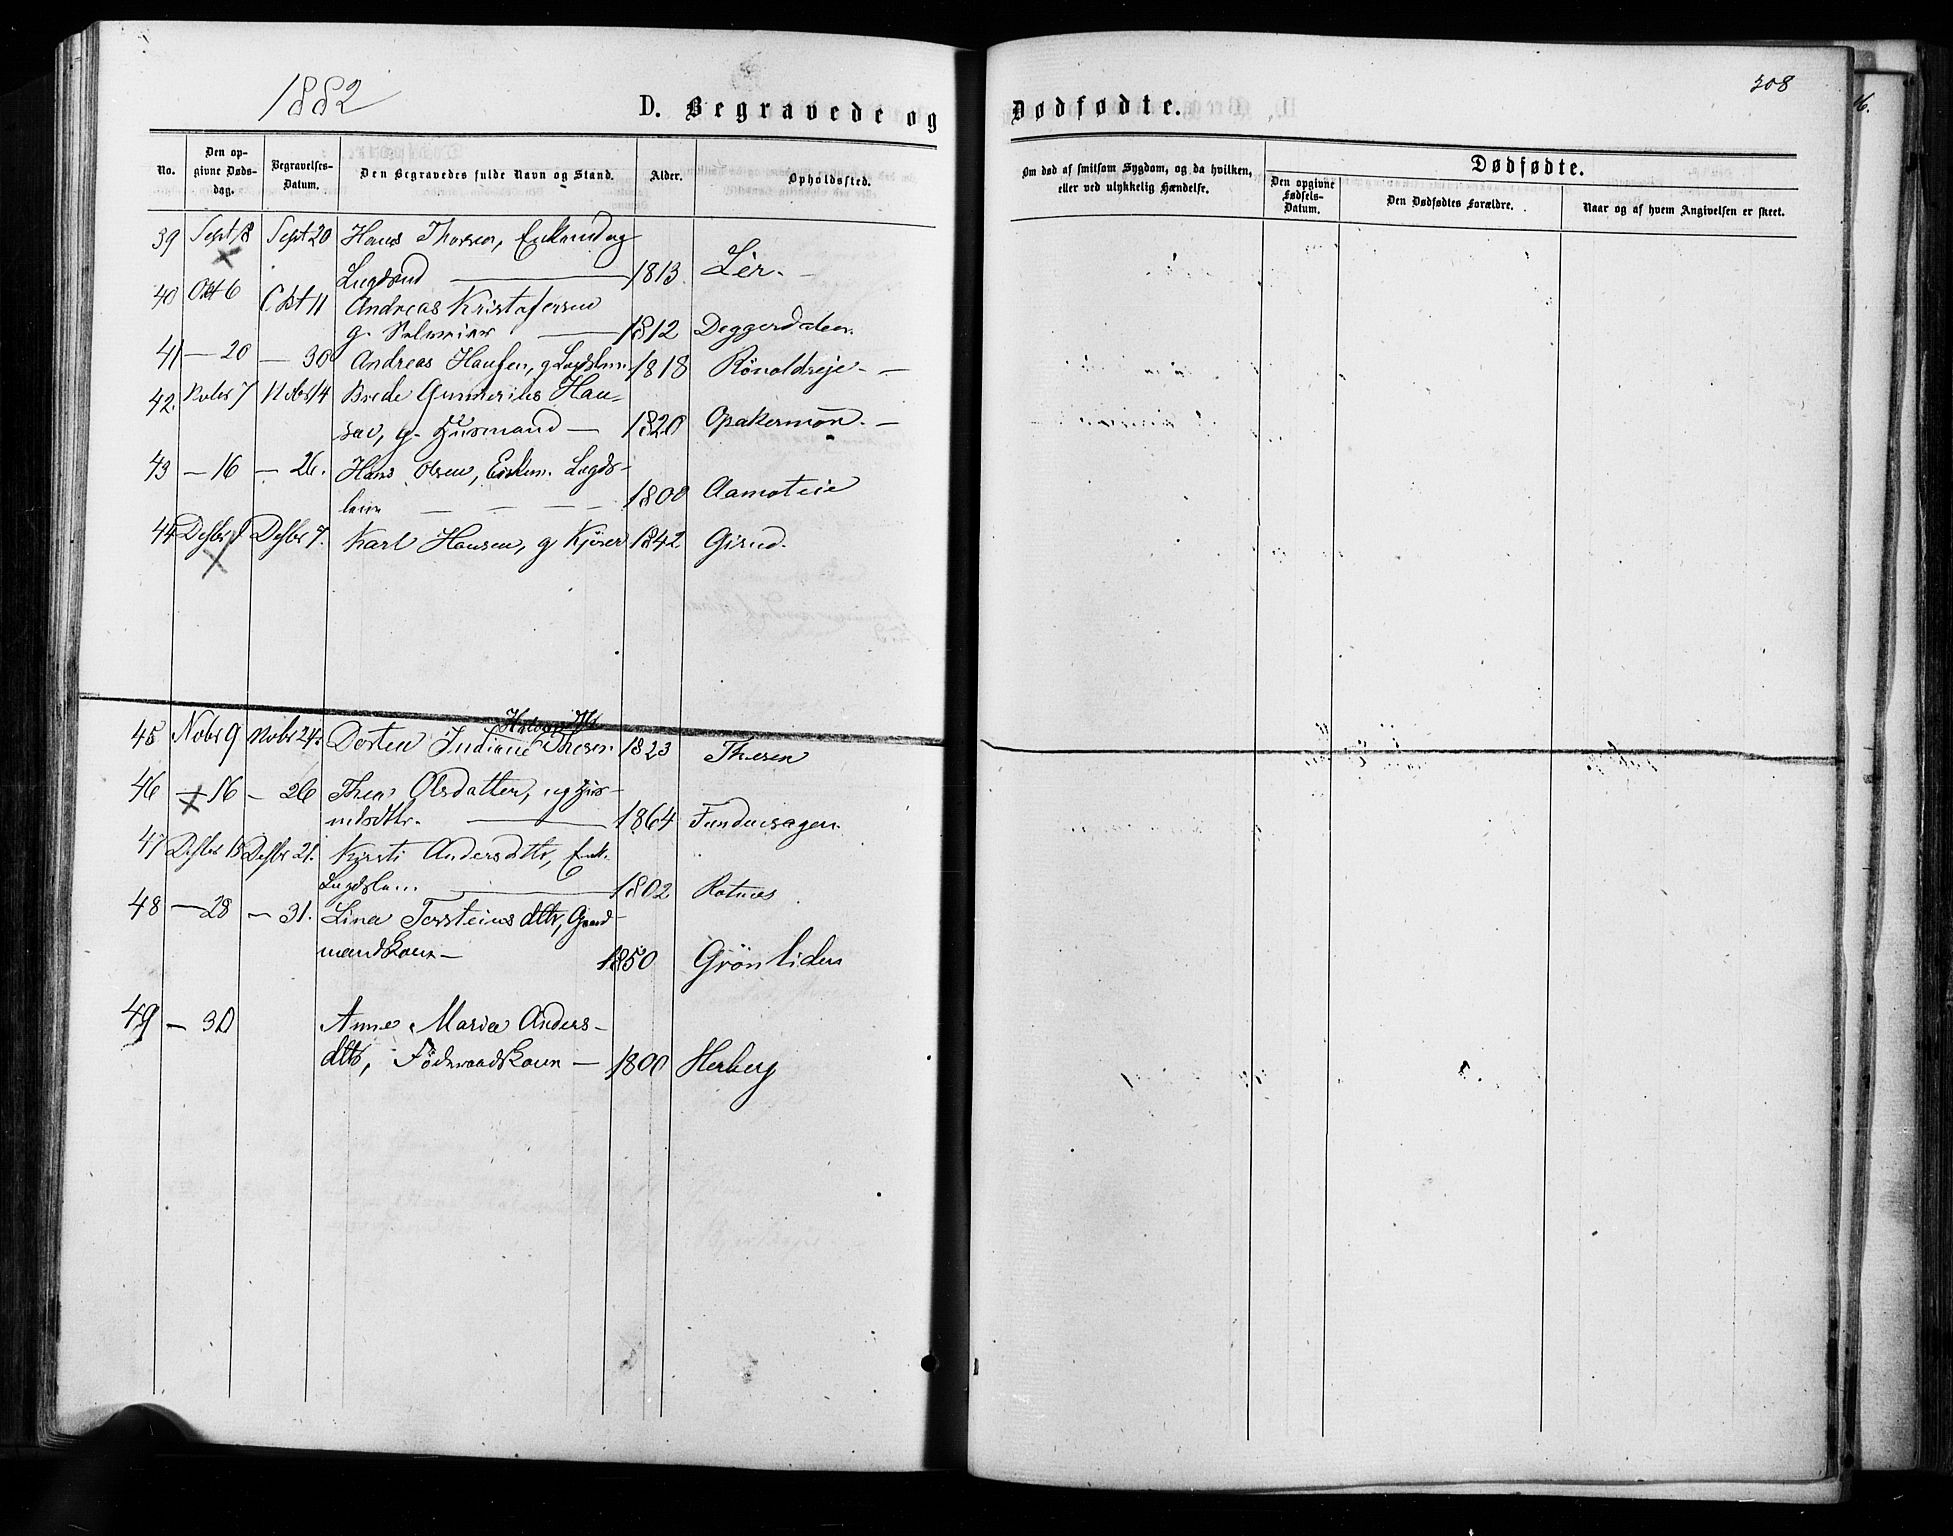 1882
D. Begravede og
No.
Den op-
givne Døds-
dag.
Begravelses-
Datum.
Den Begravedes fulde Navn og Stand.
Alder.
Opholdssted.
39 Sept 18 Sept 20 Hans Thorsen, Enkemd og
Lægdslmd 1813 Lier.
40 Okt 6 Okt 11 Andreas Kristofersen
g. 1812
41 — 20 — 30 Andreas Hansen, g. Lægdslem 1818
42. Nobr 7 Nobr 14 Brede Gunnerius Han-
sen, g. Husmand — 1820 Opakermoen. —
43 — 16 — 26. Hans Olsen, Enkem. Lægds-
lem — — — — 1800 Aamoteie
44 Desbr 1 Desbr 7. Karl Hansen, g 1842
45 Nobr 9 Nobr 24. Dorten Indiane Thesen 1823 Thesen
46 — 16 — 26 Thea Olsdatter, ug Hus-
mdsdtr. 1864
47 Desbr 15 Desbr 21. Kirsti Andersdtr, Enk.
Lægdslem 1802 Rotnes
48 — 28 — 31. Lina Torsteinsdtr, Gaard-
mandskone — 1850
49 — 30 Anne Maria Anders-
dtr, Föderaadskone — 1800 Herberg
308
Dødfødte.
Om død af smitsom Sygdom, og da hvilken,
eller ved ulykkelig Hændelse.
Dødfødte.
Den opgivne
Fødsels-
Datum.
Den Dødfødtes Forældre.
Naar og af hvem Angivelsen er skeet.